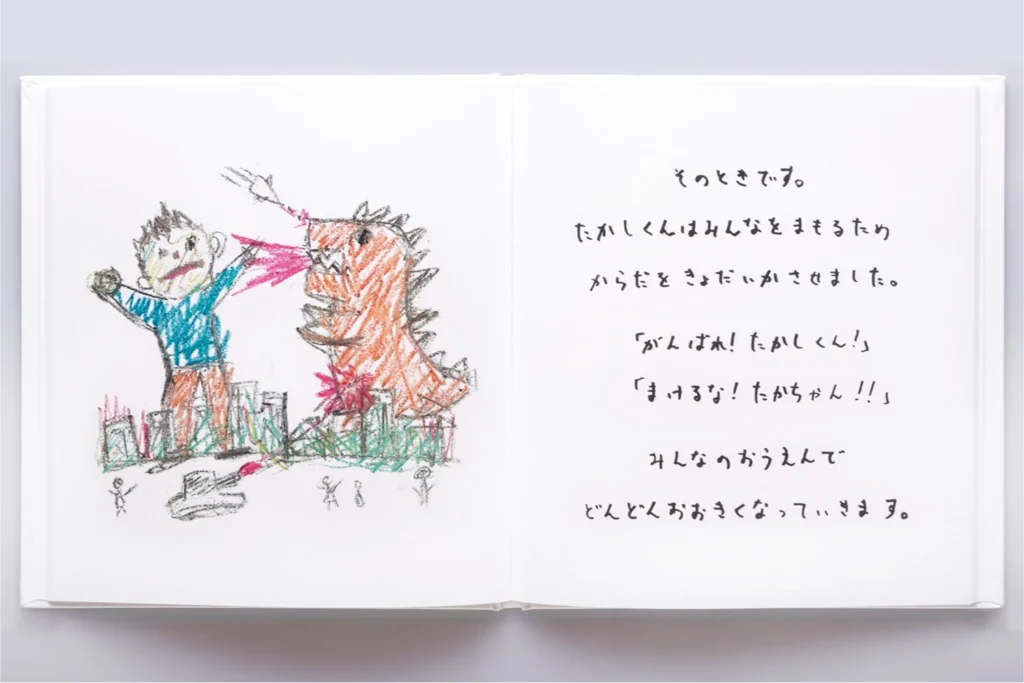 そのときです。
たかしくんはみんなをまもるため
からだを きょだいかさせました。
「がんばれ！たかしくん！」
「まけるな！たかちゃん！！」
みんなのおうえんで
どんどんおおきくなっていきます。